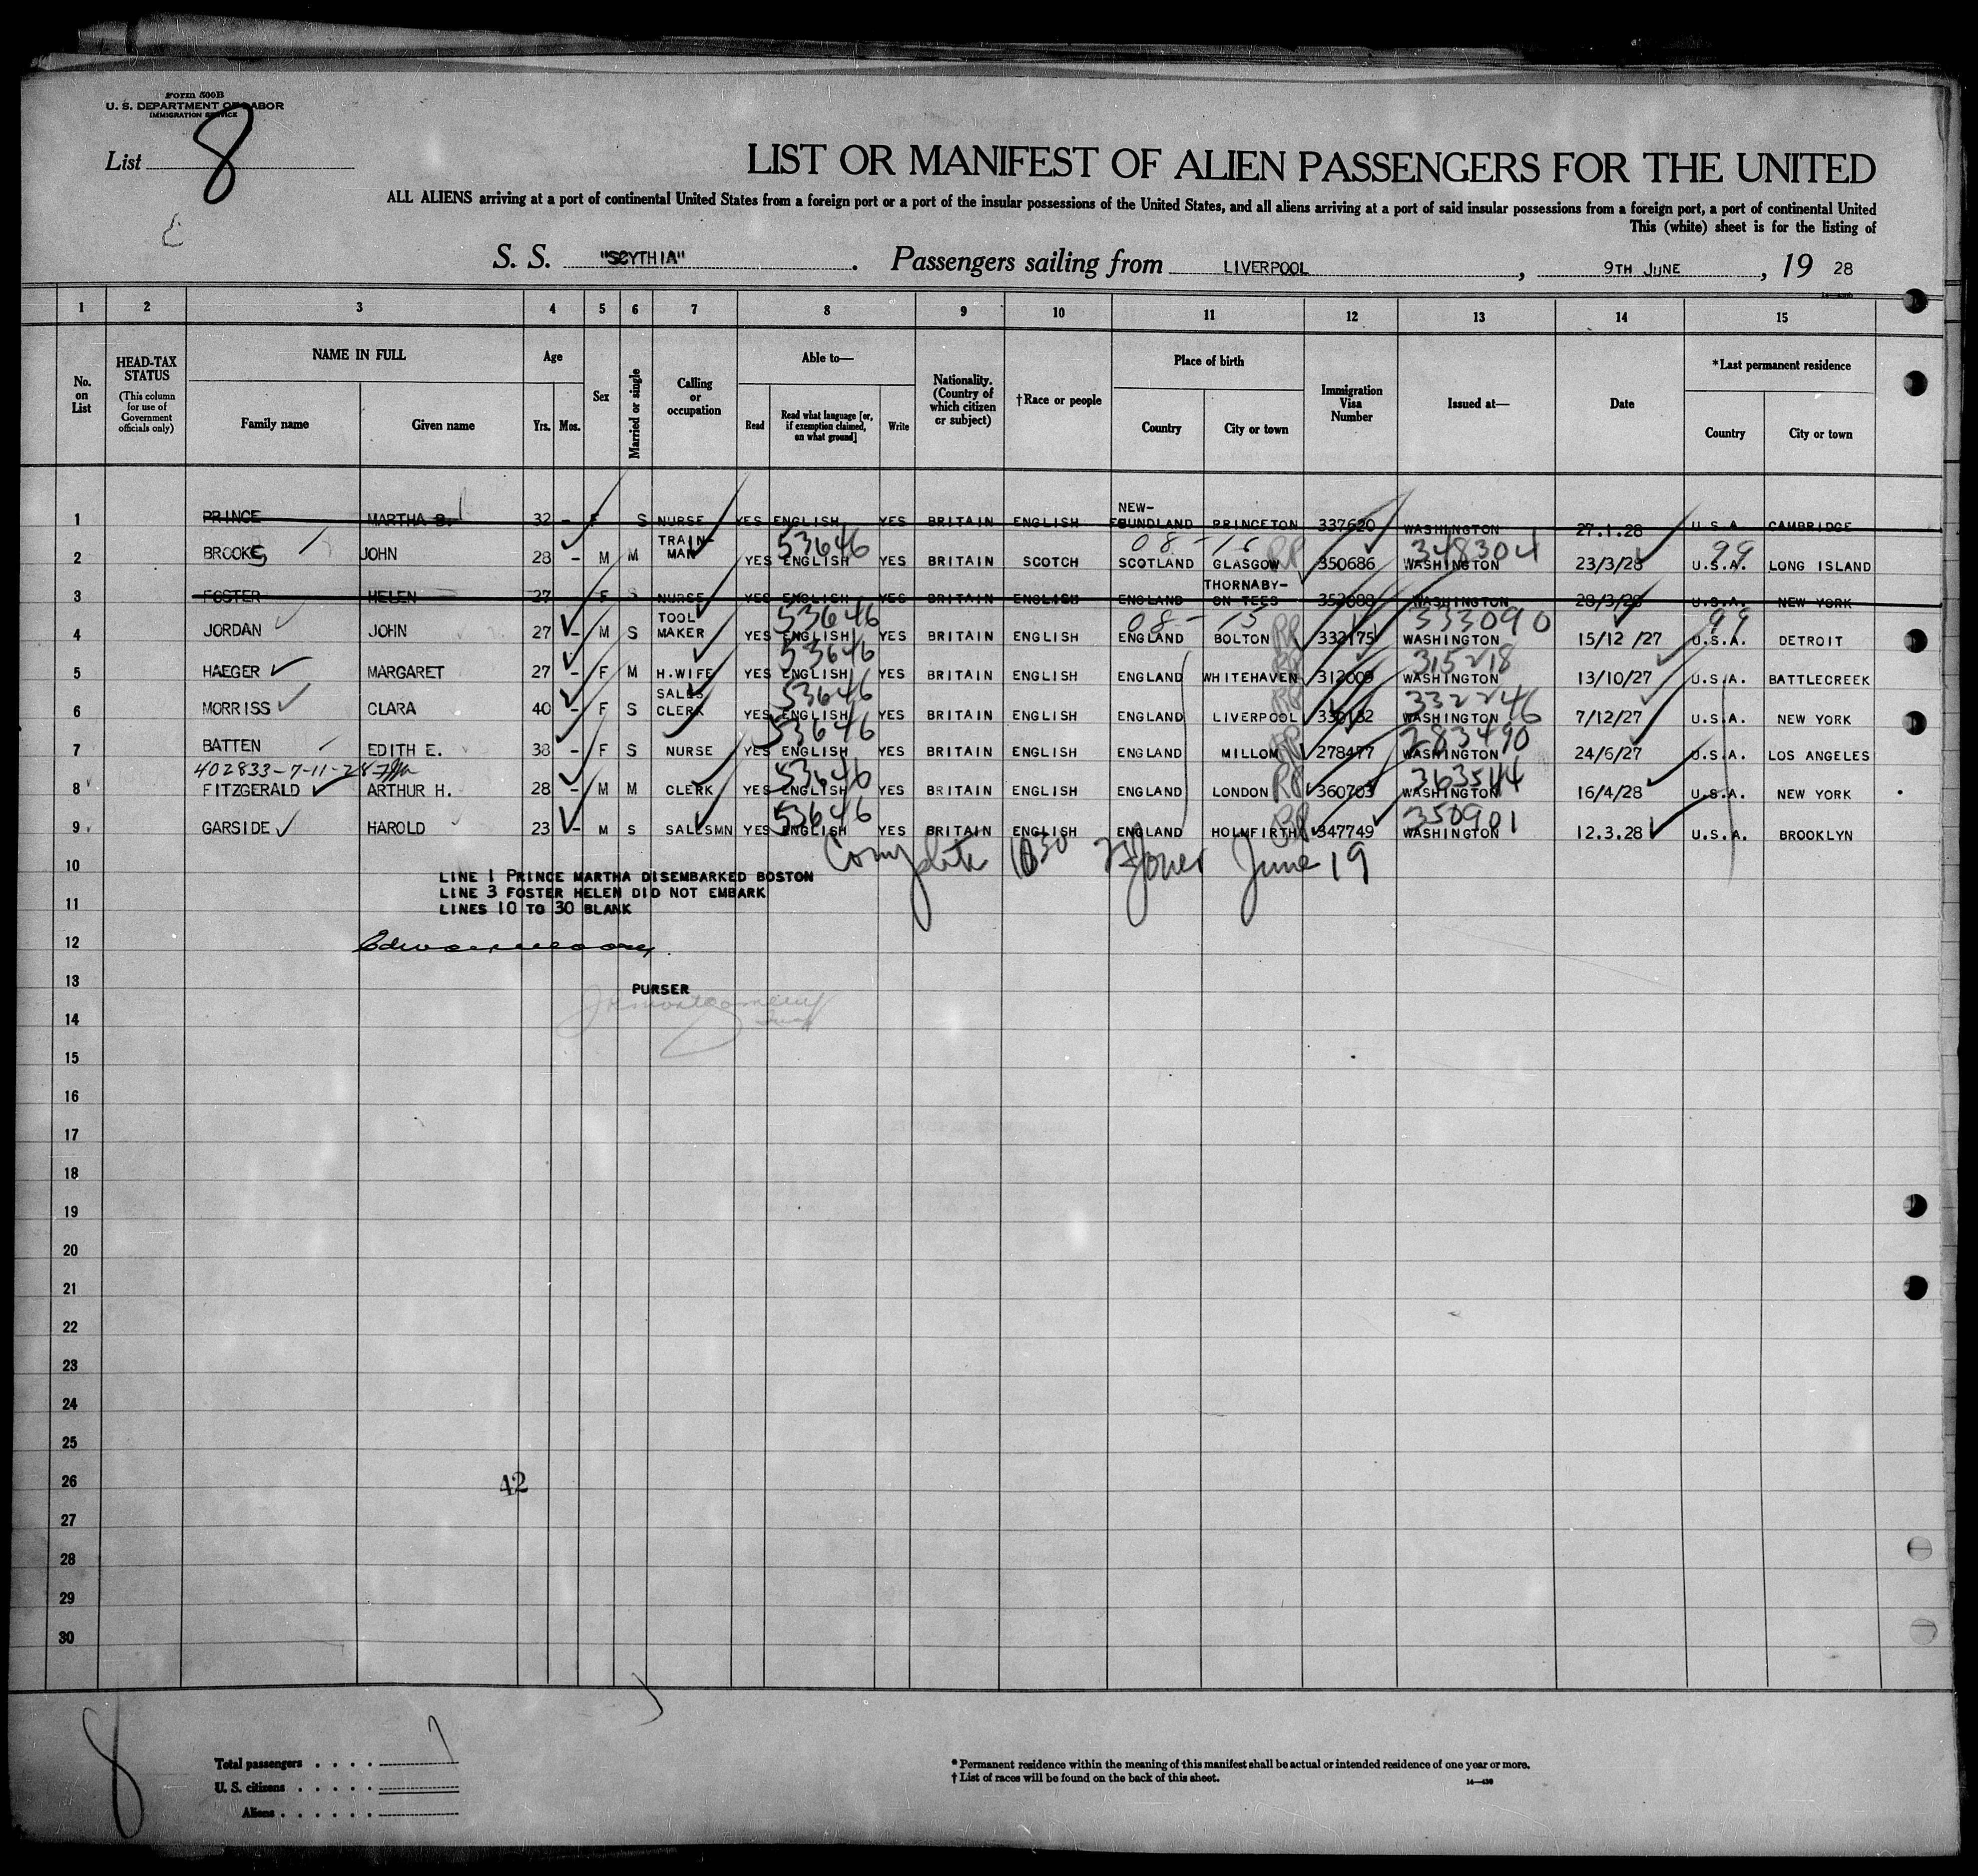 Form 500B
U. S. DEPARTMENT OF LABOR
IMMIGRATION SERVICE
List 8
LIST OR MANIFEST OF ALIEN PASSENGERS FOR THE UNITED
ALL ALIENS arriving at a port of continental United States from a foreign port or a port of the insular possessions of the United States, and all aliens arriving at a port of said insular possessions from a foreign port, a port of continental United
This (white) sheet is for the listing of
S. S. "SCYTHIA" . Passengers sailing from LIVERPOOL , 9TH JUNE , 19 28
1 2 3 4 5 6 7 8 9 10 11 12 13 14 15
No. on List
HEAD-TAX STATUS (This column for use of Government officials only)
NAME IN FULL
Family name Given name
Age
Yrs. Mos.
Sex
Married or single
Calling or occupation
Able to—
Read Read what language [or, if exemption claimed, on what ground] Write
Nationality. (Country of which citizen or subject)
†Race or people
Place of birth
Country City or town
Immigration Visa Number
Issued at—
Date
*Last permanent residence
Country City or town
1 PRINCE MARTHA B. 32 - F S NURSE YES ENGLISH YES BRITAIN ENGLISH NEW-FOUNDLAND PRINCETON 337620 WASHINGTON 27.1.28 U.S.A. CAMBRIDGE
53646 08-16 348304 99
2 BROOKS JOHN 28 - M M TRAIN-MAN YES ENGLISH YES BRITAIN SCOTCH SCOTLAND GLASGOW RP 350686 WASHINGTON 23/3/28 U.S.A. LONG ISLAND
3 FOSTER HELEN 27 - F S NURSE YES ENGLISH YES BRITAIN ENGLISH ENGLAND THORNABY-ON TEES 352088 WASHINGTON 28/3/28 U.S.A. NEW YORK
53646 08-15 333090 99
4 JORDAN JOHN 27 - M S TOOL MAKER YES ENGLISH YES BRITAIN ENGLISH ENGLAND BOLTON RP 332175 WASHINGTON 15/12/27 U.S.A. DETROIT
53646 315218
5 HAEGER MARGARET 27 - F M H.WIFE YES ENGLISH YES BRITAIN ENGLISH ENGLAND WHITEHAVEN RP 312009 WASHINGTON 13/10/27 U.S.A. BATTLECREEK
53646 332246
6 MORRISS CLARA 40 - F S SALES CLERK YES ENGLISH YES BRITAIN ENGLISH ENGLAND LIVERPOOL RP 330132 WASHINGTON 7/12/27 U.S.A. NEW YORK
53646 283490
7 BATTEN EDITH E. 38 - F S NURSE YES ENGLISH YES BRITAIN ENGLISH ENGLAND MILLOM RP 278477 WASHINGTON 24/6/27 U.S.A. LOS ANGELES
402833-7-11-28 53646 363544
8 FITZGERALD ARTHUR H. 28 - M M CLERK YES ENGLISH YES BRITAIN ENGLISH ENGLAND LONDON RP 360703 WASHINGTON 16/4/28 U.S.A. NEW YORK
53646 350901
9 GARSIDE HAROLD 23 - M S SALESMN YES ENGLISH YES BRITAIN ENGLISH ENGLAND HOLMFIRTH RP 347749 WASHINGTON 12.3.28 U.S.A. BROOKLYN
Complete 1030 June 19
10
LINE 1 PRINCE MARTHA DISEMBARKED BOSTON
LINE 3 FOSTER HELEN DID NOT EMBARK
11
LINES 10 TO 30 BLANK
12
13
PURSER
JRMontgomery
14
15
16
17
18
19
20
21
22
23
24
25
26
42
27
28
29
30
8
Total passengers . . . . 7
U. S. citizens . . . . .
Aliens . . . . . .
* Permanent residence within the meaning of this manifest shall be actual or intended residence of one year or more.
† List of races will be found on the back of this sheet.
14—430